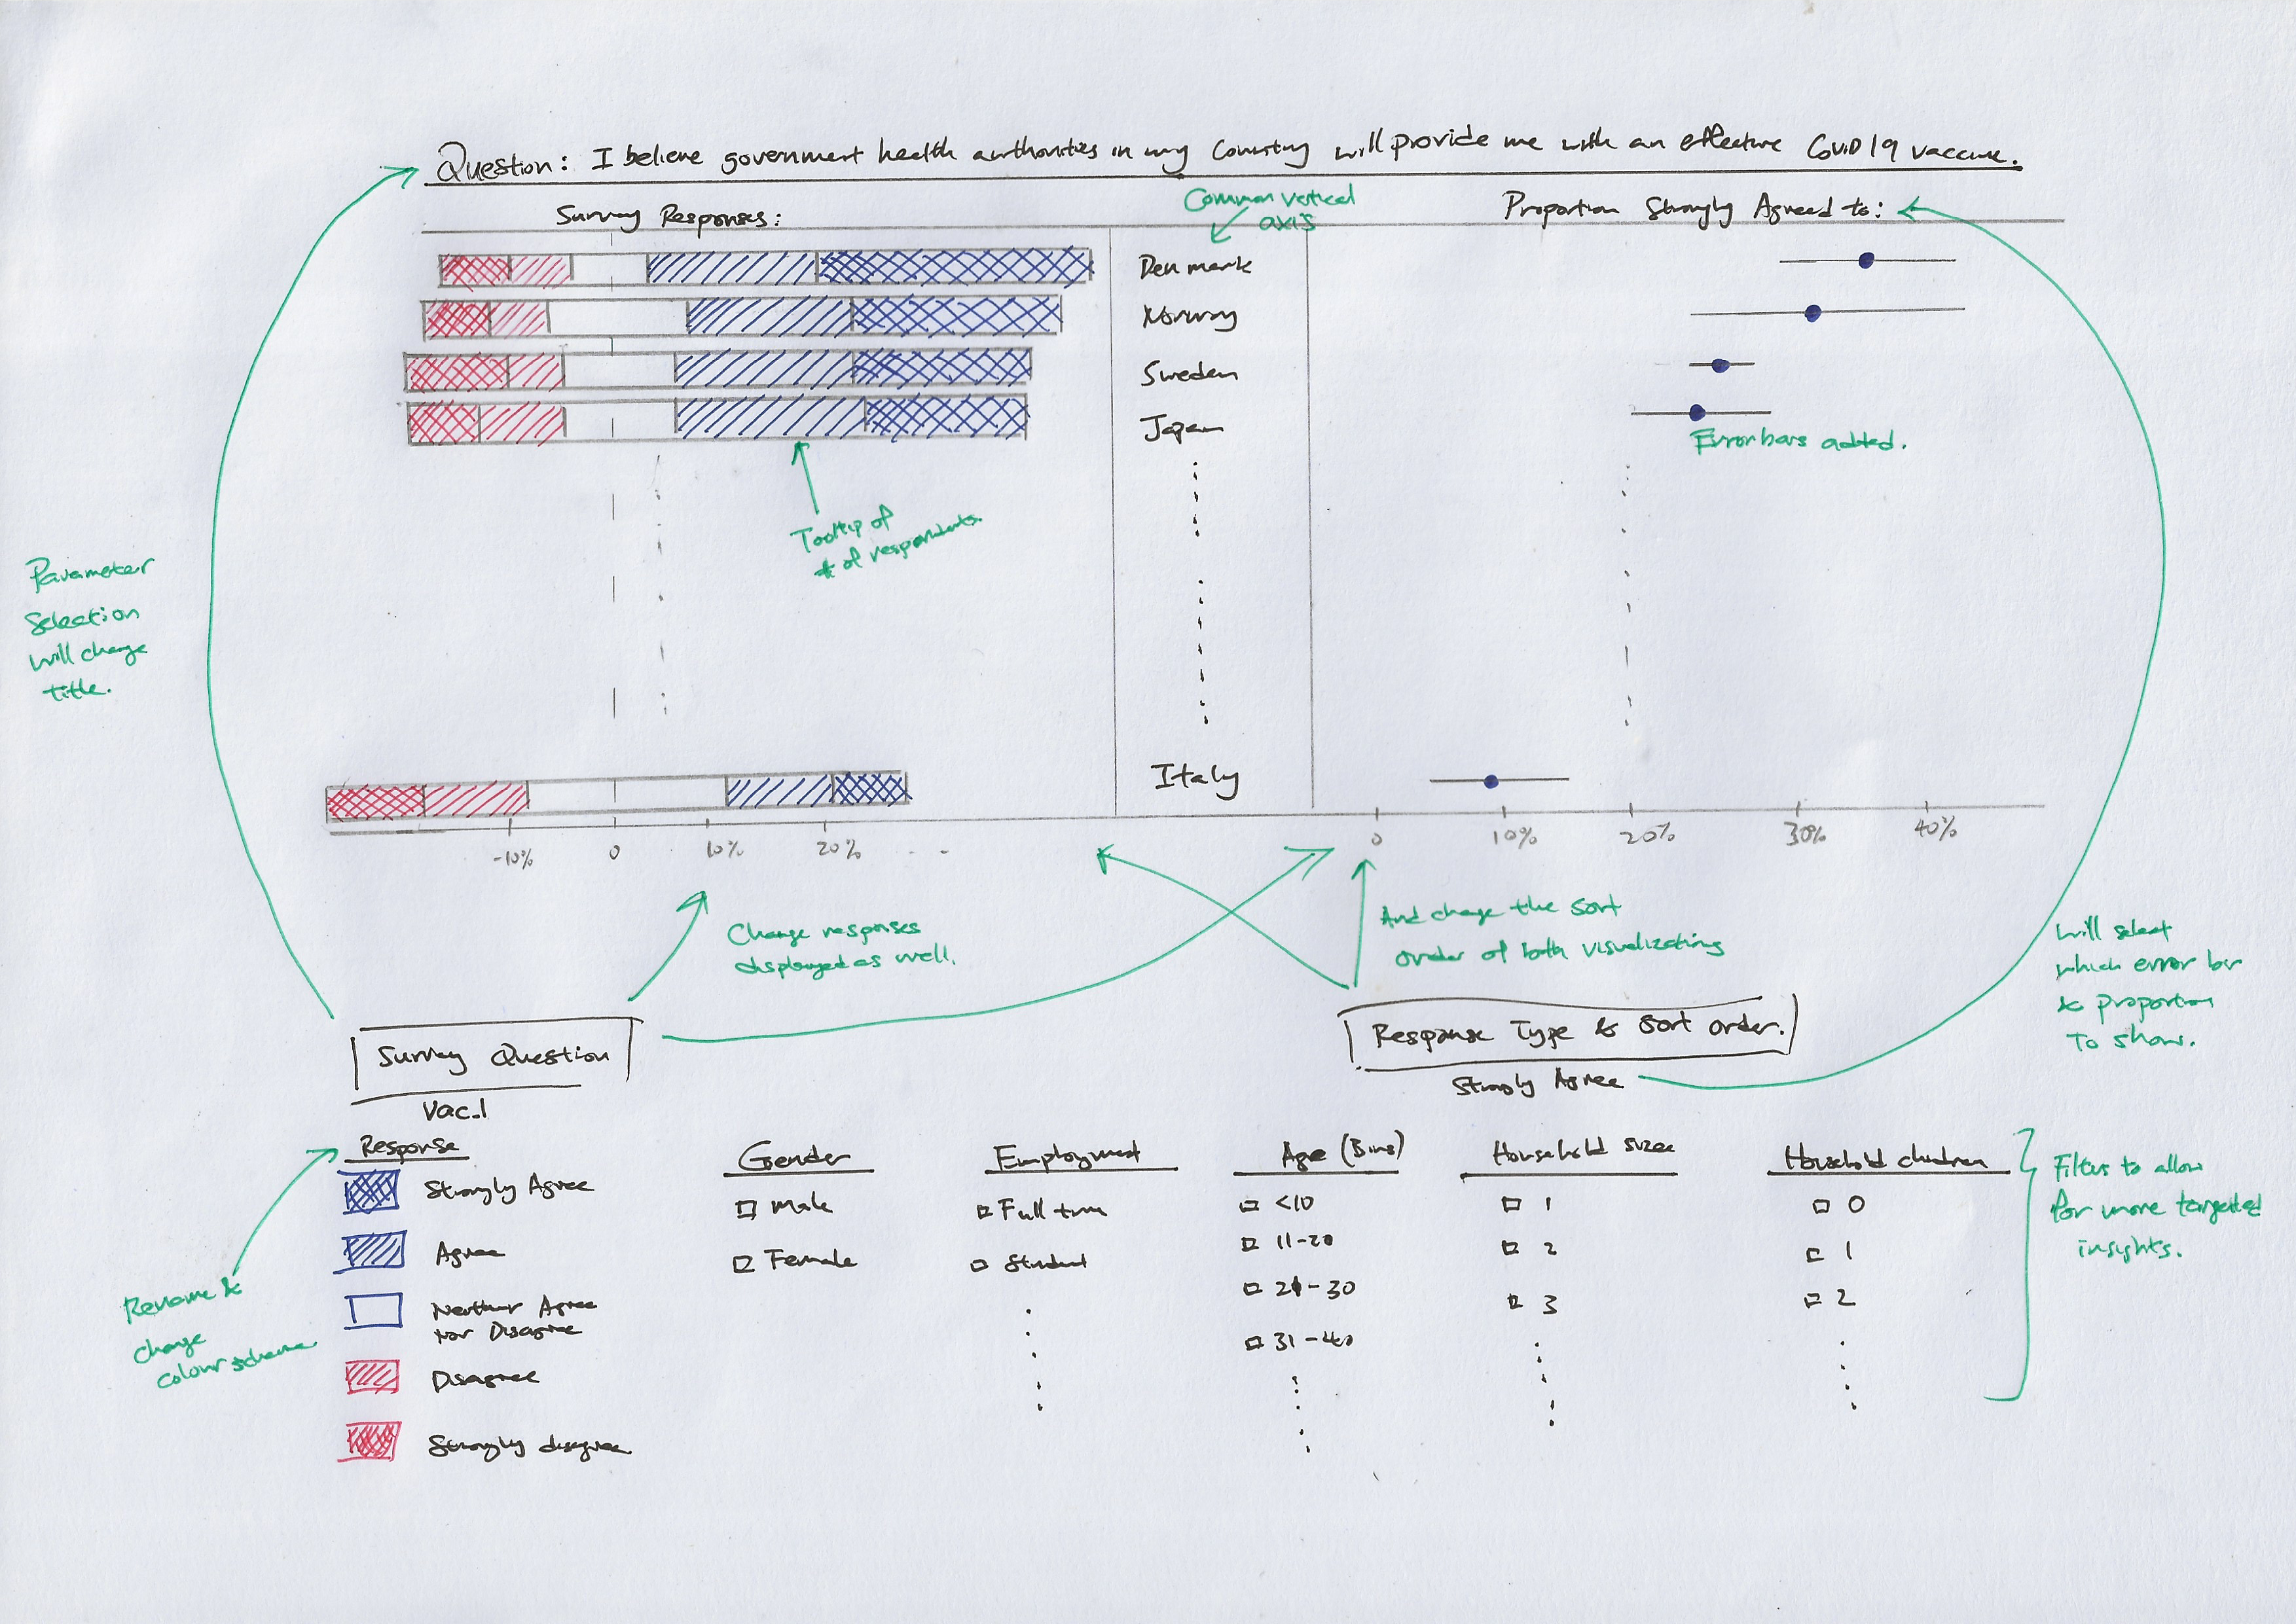 Question: I believe government health authorities in my Country will provide me with an effective CoViD 19 vaccine.
Survey Responses:
Common vertical
axis
Proportion Strongly Agreed to:
Denmark
Norway
Sweden
Japan
Error bars added.
Tooltip of
# of respondents.
Parameter
Selection
will change
title.
Italy
-10%
0
10%
20%
0
10%
20%
30%
40%
Change responses
displayed as well.
And change the sort
order of both visualizating
Will select
which error bar
& proportion
To show.
Survey Question
Vac_1
Response Type & Sort order.
Strongly Agree
Response
Strongly Agree
Agree
Neither Agree
Nor Disagree
Disagree
Strongly disagree
Rename &
change
colour scheme
Gender
Male
Female
Employment
Full time
Student
Age (Bins)
<10
11-20
21-30
31-40
Household sizes
1
2
3
Household children
0
1
2
Filters to allow
for more targeted
insights.